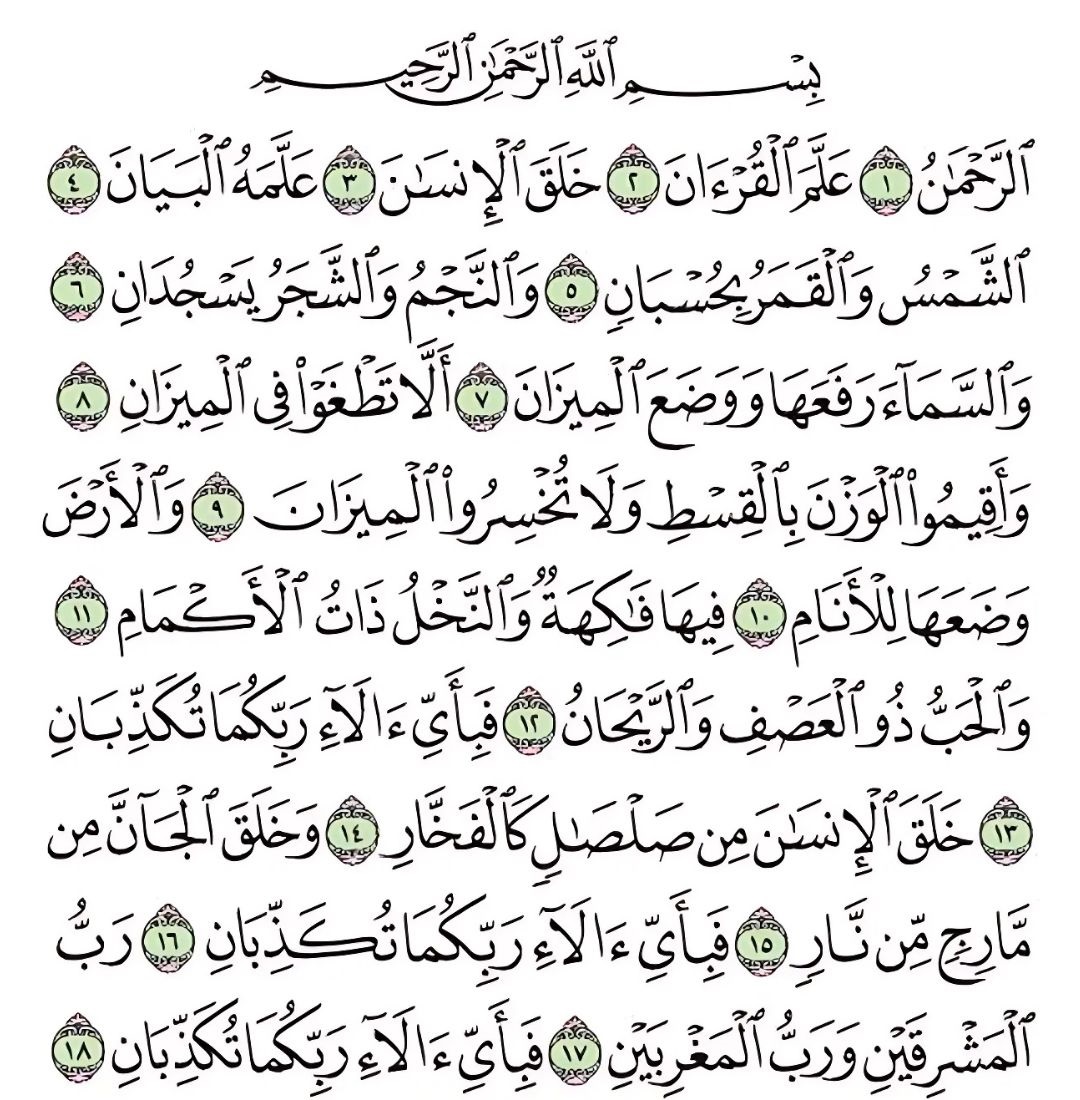 بِسْمِ ٱللَّهِ ٱلرَّحْمَٰنِ ٱلرَّحِيمِ
ٱلرَّحْمَٰنُ ١ عَلَّمَ ٱلْقُرْءَانَ ٢ خَلَقَ ٱلْإِنسَٰنَ ٣ عَلَّمَهُ ٱلْبَيَانَ ٤
ٱلشَّمْسُ وَٱلْقَمَرُ بِحُسْبَانٍ ٥ وَٱلنَّجْمُ وَٱلشَّجَرُ يَسْجُدَانِ ٦
وَٱلسَّمَآءَ رَفَعَهَا وَوَضَعَ ٱلْمِيزَانَ ٧ أَلَّا تَطْغَوْا۟ فِى ٱلْمِيزَانِ ٨
وَأَقِيمُوا۟ ٱلْوَزْنَ بِٱلْقِسْطِ وَلَا تُخْسِرُوا۟ ٱلْمِيزَانَ ٩ وَٱلْأَرْضَ
وَضَعَهَا لِلْأَنَامِ ١٠ فِيهَا فَٰكِهَةٌ وَٱلنَّخْلُ ذَاتُ ٱلْأَكْمَامِ ١١
وَٱلْحَبُّ ذُو ٱلْعَصْفِ وَٱلرَّيْحَانُ ١٢ فَبِأَىِّ ءَالَآءِ رَبِّكُمَا تُكَذِّبَانِ
١٣ خَلَقَ ٱلْإِنسَٰنَ مِن صَلْصَٰلٍ كَٱلْفَخَّارِ ١٤ وَخَلَقَ ٱلْجَآنَّ مِن
مَّارِجٍ مِّن نَّارٍ ١٥ فَبِأَىِّ ءَالَآءِ رَبِّكُمَا تُكَذِّبَانِ ١٦ رَبُّ
ٱلْمَشْرِقَيْنِ وَرَبُّ ٱلْمَغْرِبَيْنِ ١٧ فَبِأَىِّ ءَالَآءِ رَبِّكُمَا تُكَذِّبَانِ ١٨